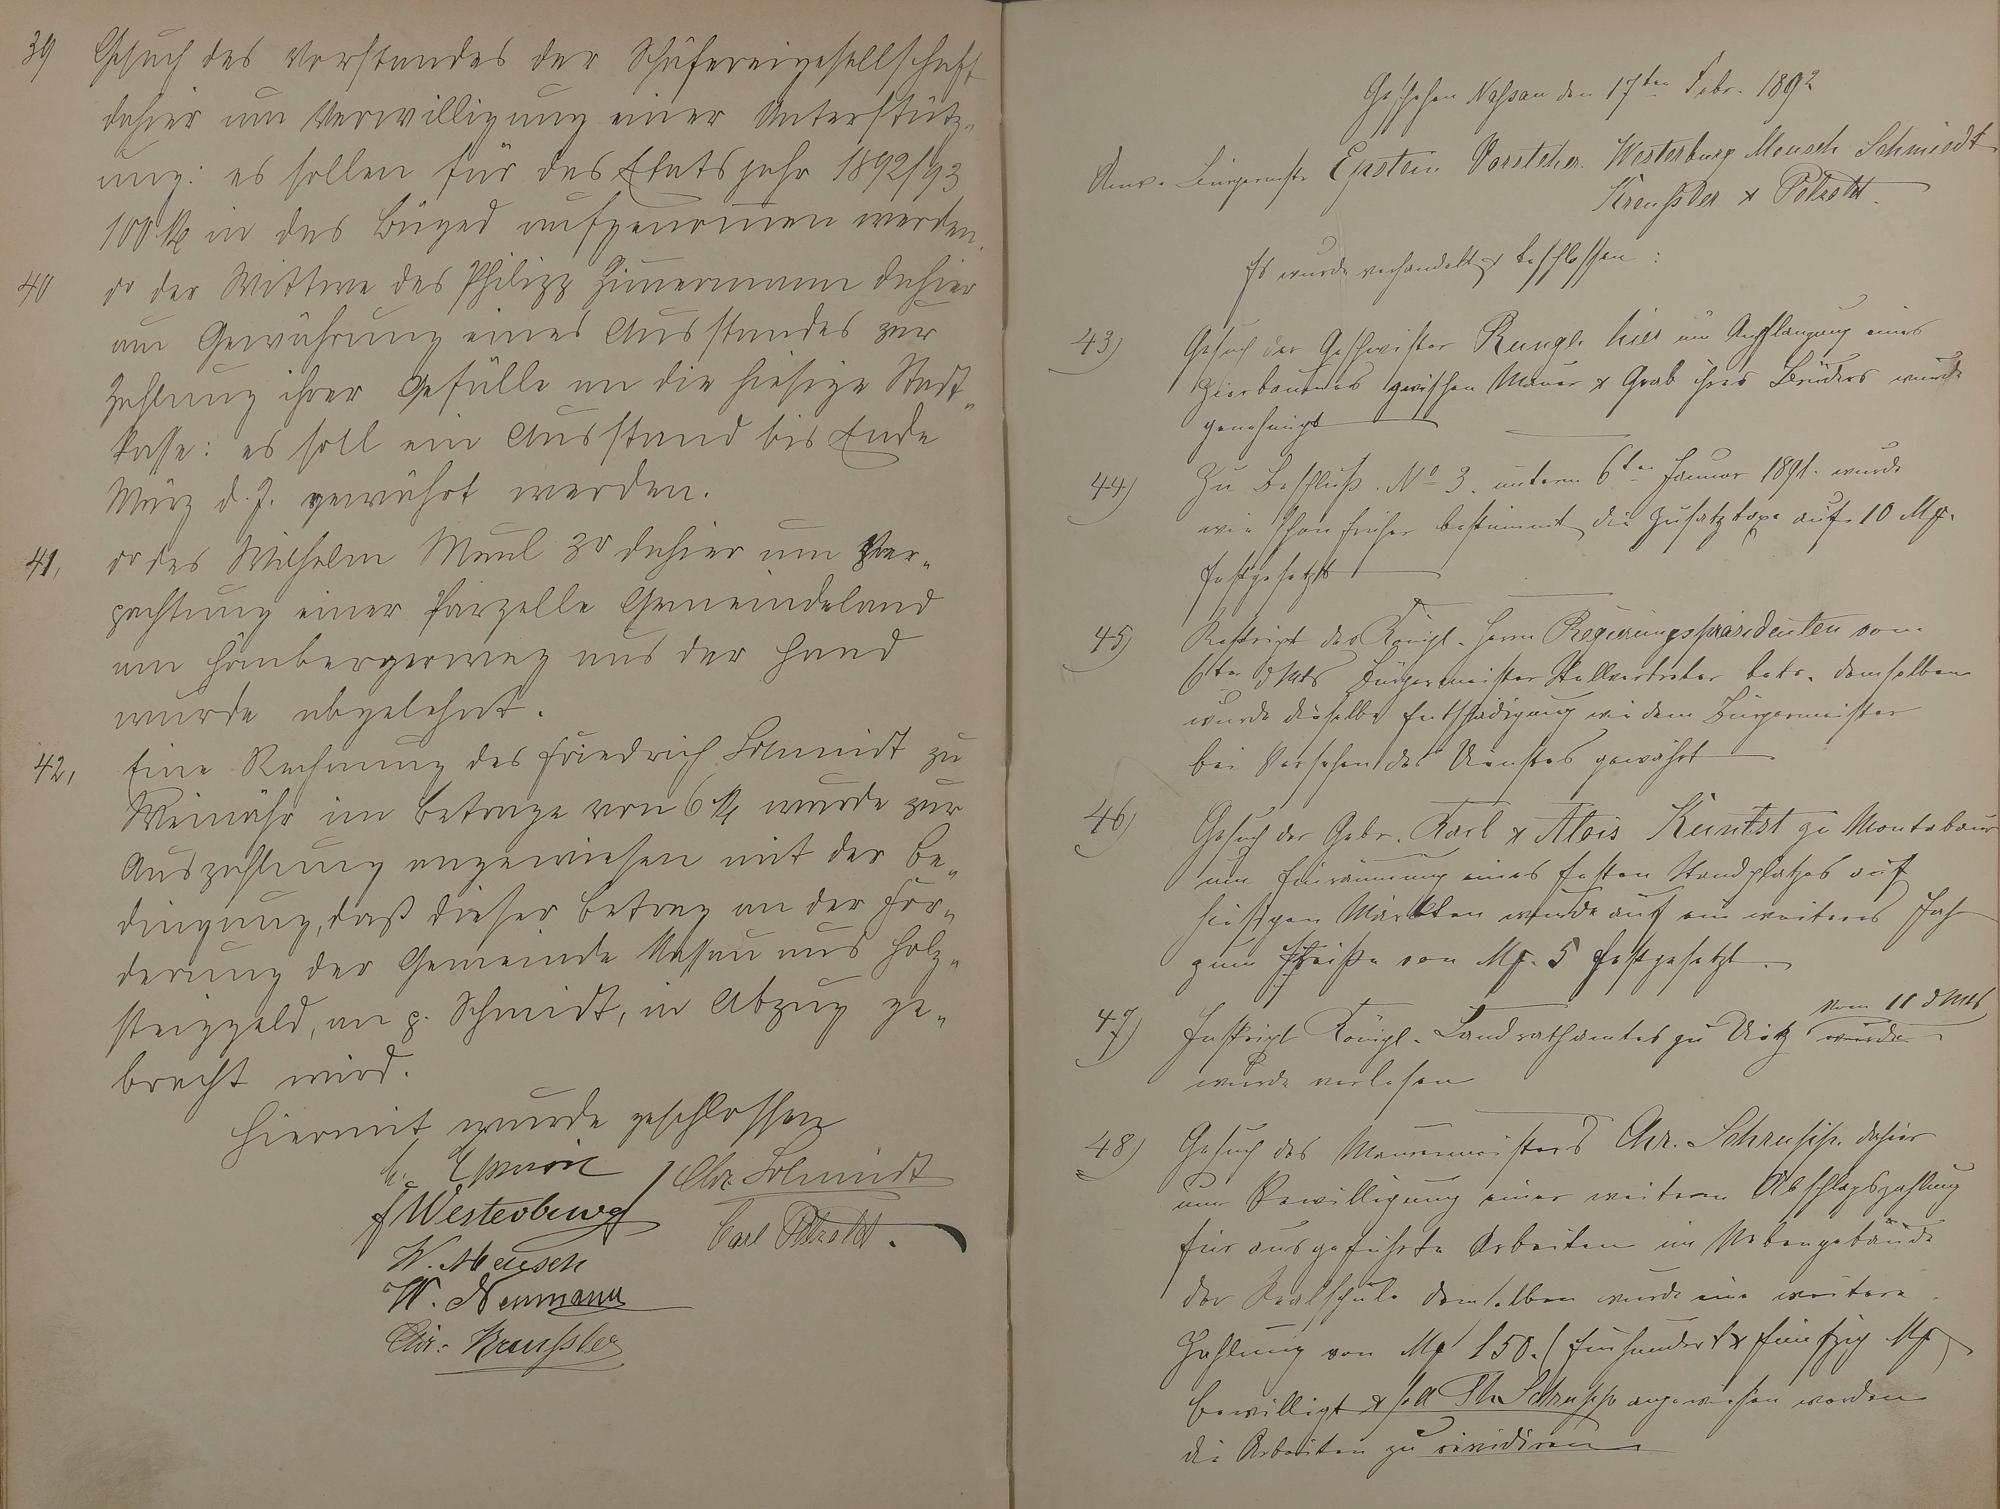 39 Gesuch des Vorstandes der Schäfereigesellschaft
dahier um Verwilligung einer Unterstütz-
ung: es sollen für das Etatsjahr 1892/93
100 M in das Büged aufgenommen werden.
40 do der Wittwe des Philipp Zimmermann dahier
um Gewährung eines Ausstandes zur
Zahlung ihrer Gefälle an die hiesige Stadt-
kasse: es soll ein Ausstand bis Ende
März d. J. gewährt werden.
41, do des Wilhelm Maul 3r dahier um Ver-
pachtung einer Parzelle Gemeindeland
am Hömbergerweg aus der Hand
wurde abgelehnt.
42, Eine Rechnung des Friedrich Schmidt zu
Weinähr im Betrage von 6 M wurde zur
Auszahlung angewiesen mit der Be-
dingung, daß dieser Betrag an der For-
derung der Gemeinde Nassau aus Holz-
steiggeld, an p. Schmidt, in Abzug ge-
bracht wird.
Hiermit wurde geschlossen
Epstein Chr. Schmidt
Westerburg
Carl Petzold.
W. Mensch
W. Neumann
Chr. Kreussler
Geschehen Nassau den 17ten Febr. 1892
Bürgermstr Epstein Vorsteher Westerburg Mensch Schmidt
Kreußler & Petzold.
Es wurde verhandelt & beschlossen:
43) Gesuch der Geschwister hier um Anpflanzung eines
Zierbaumes zwischen Mauer & Grab ihres Bruders wurde
genehmigt
44) Zu Beschluß No 3. unterm 6ten Januar 1891. wurde
wie schon früher bestimmt die Zusatztaxe auf 10 Mk.
festgesetzt
45) Reskript des Königl. Herrn Regierungspräsidenten vom
6ten d Mts Bürgermeister Stellvertreter betr. demselben
wurde dieselbe Entschädigung wie dem Bürgermeister
bei Versehen des Dienstes gewährt
46) Gesuch der Gebr. Karl & Alois Kuntst zu Montabaur
um Einräumung eines festen Standplatzes auf
hiesigen Märkten wurde auf ein weiteres Jahr
zum Preise von Mk. 5 festgesetzt.
47) Königl. Landrathsamtes zu Diez wurde vom 11 d Mts
wurde verlesen
48) Gesuch des Maurermeisters Chr. Schrupp dahier
um Bewilligung einer weiteren Abschlagszahlung
für ausgeführte Arbeiten im Nebengebäude
der Realschule demselben wurde eine weitere
Zahlung von Mk 150. (Einhundert & fünfzig Mk)
bewilligt & soll Schrupp angewiesen werden
die Arbeiten zu revidiren